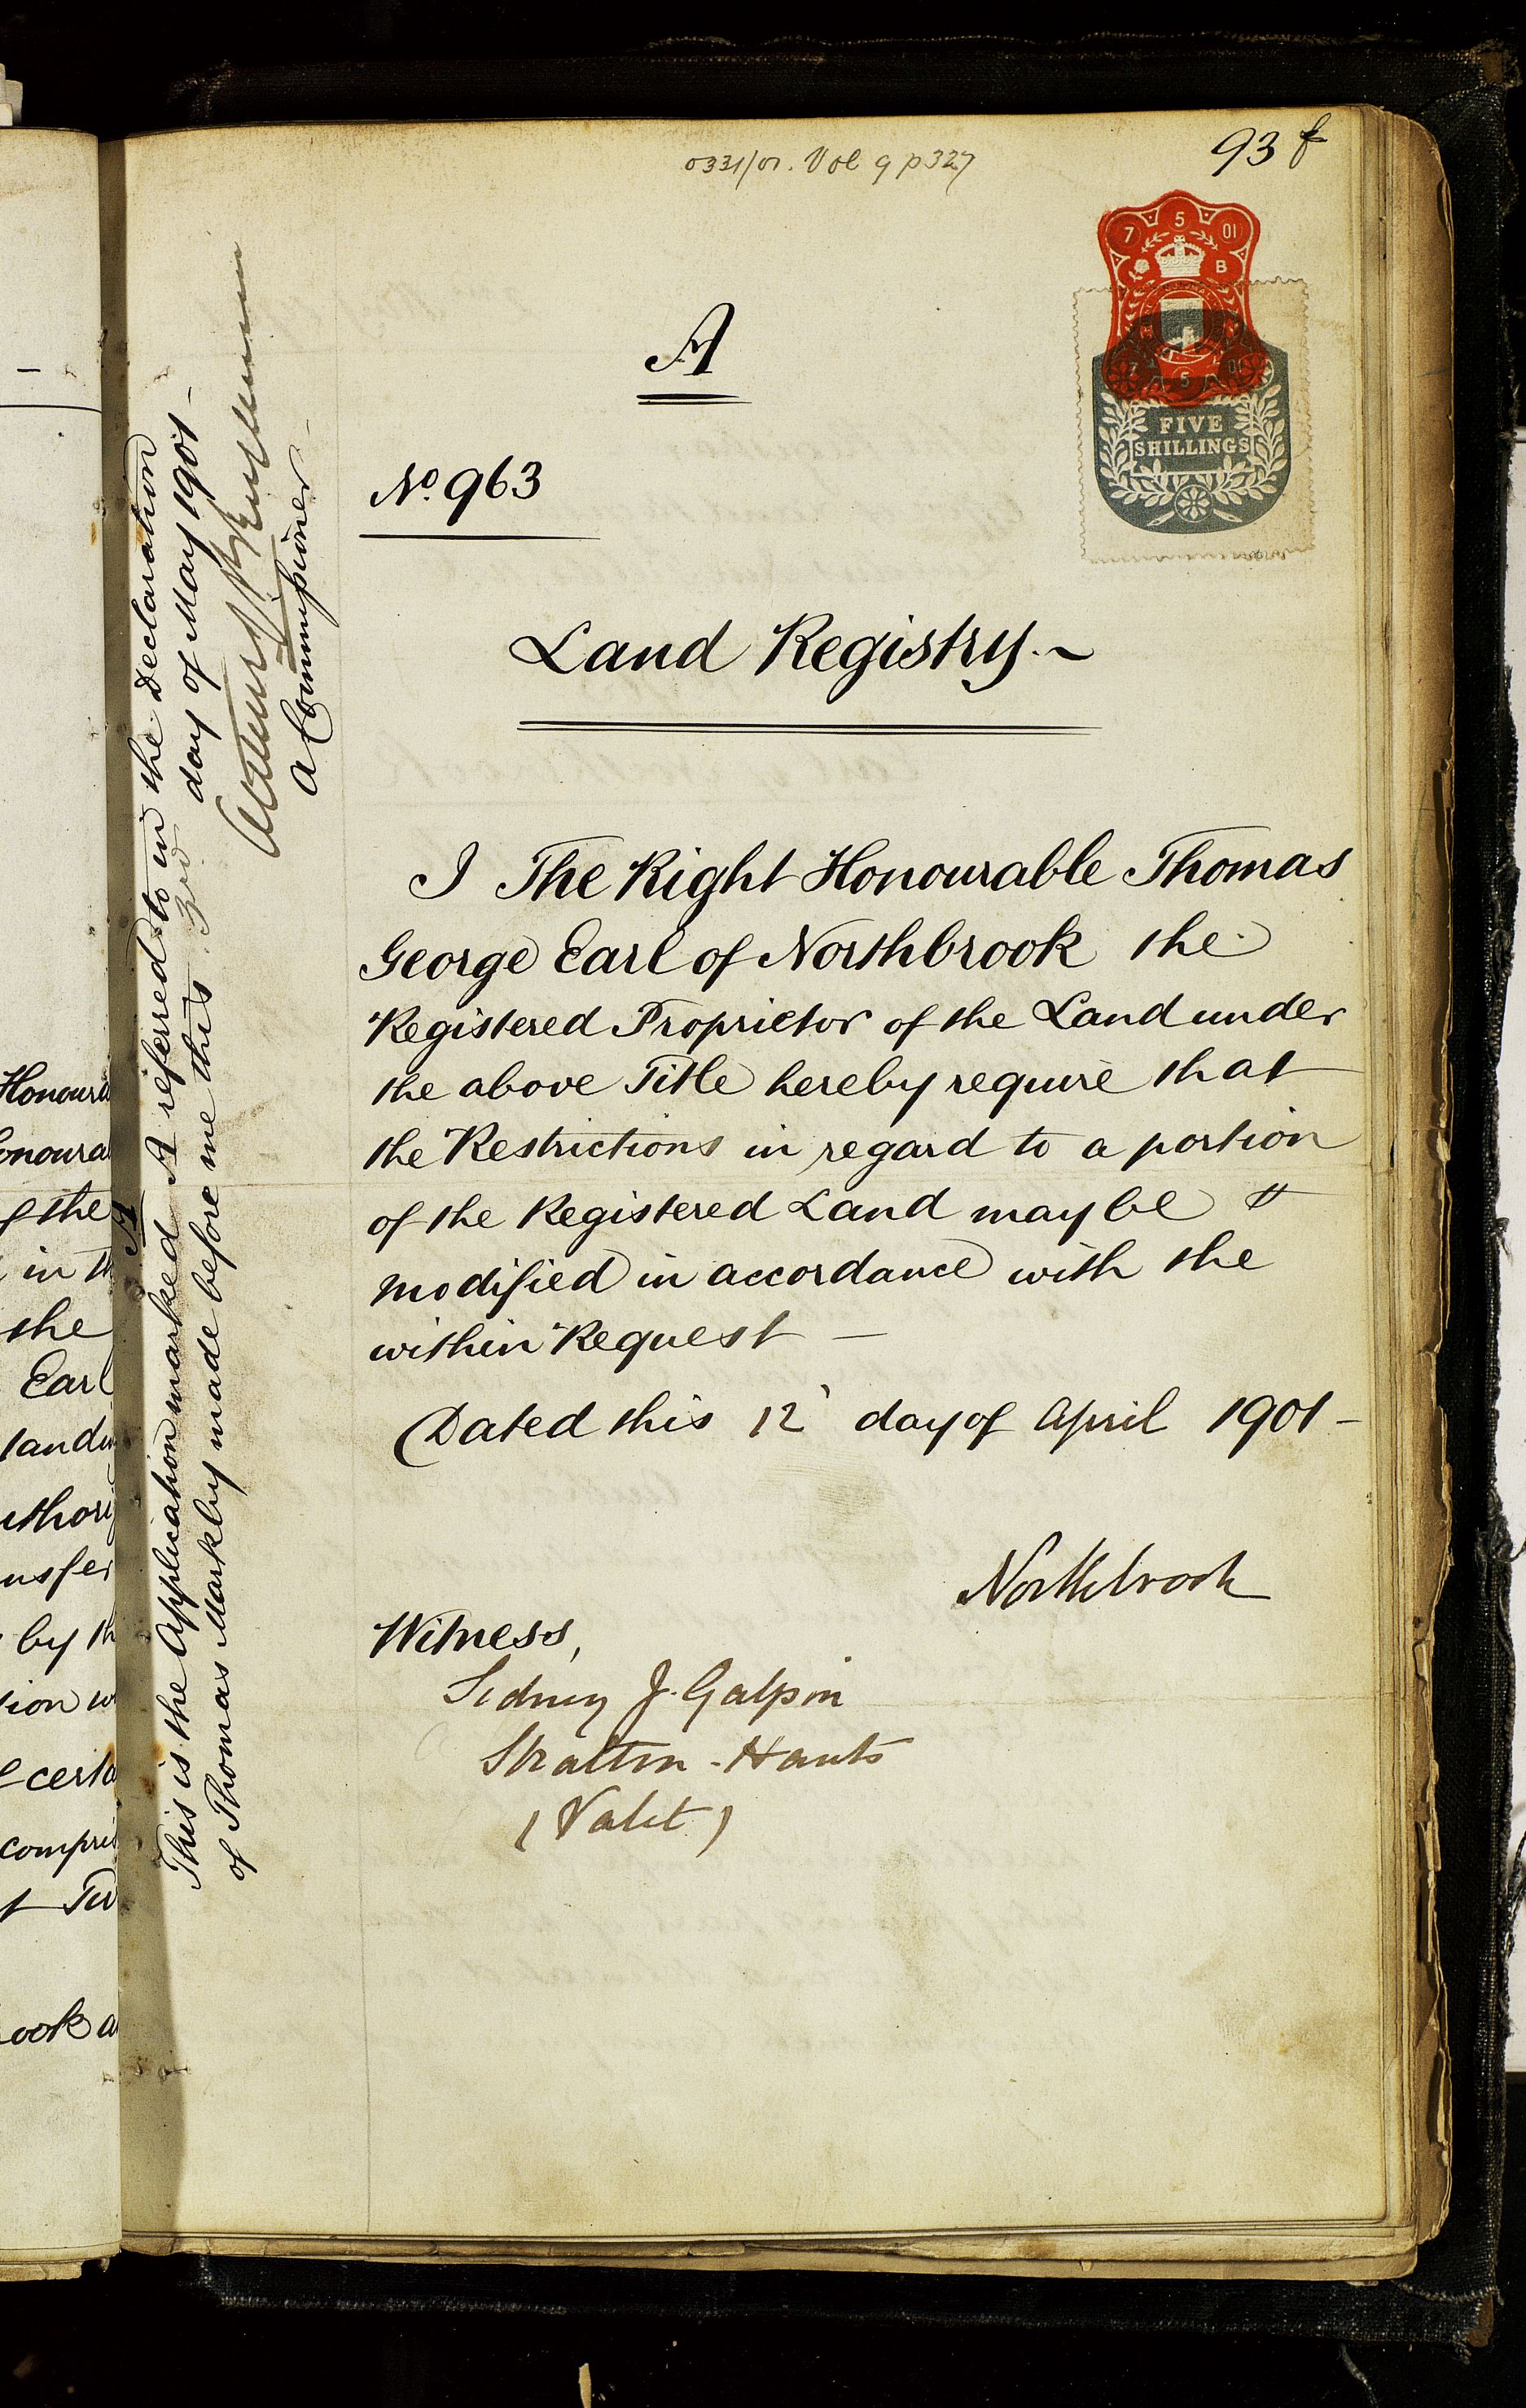 0331/01. Vol 9 p327
93 f
7 5 01
B
7 5 01
FIVE
SHILLINGS
A
No. 963
Land Registry. ~
I The Right Honourable Thomas
George Earl of Northbrook the
Registered Proprietor of the Land under
the above Title hereby require that
the Restrictions in regard to a portion
of the Registered Land may be
modified in accordance with the
within Request —
Dated this 12 day of April 1901 —
Northbrook
Witness,
Sidney J. Galpin
Stratton - Hants
(Valet)
A
This is the Application marked A referred to in the Declaration
of Thomas Markby made before me this 3rd day of May 1901 —
a Commissioner —
Honoura
onoura
f the
in th
the
Earl
tandin
uthori
nsfer
by th
tion w
certa
compris
ook a